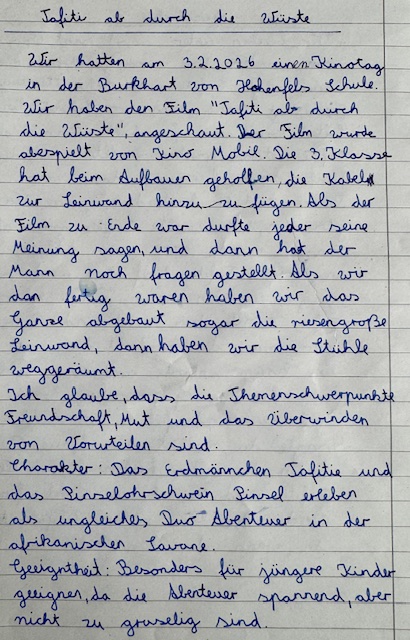 Tafiti ab durch die Wüste
Wir hatten am 3.2.2026 einen Kinotag
in der Burkhart von Hohenfels Schule.
Wir haben den Film "Tafiti ab durch
die Wüste", angeschaut. Der Film wurde
abespielt von Kino Mobil. Die 3. Klasse
hat beim Aufbauen geholfen, die Kabel
zur Leinwand hinzu zu fügen. Als der
Film zu Ende war durfte jeder seine
Meinung sagen, und dann hat der
Mann noch fragen gestellt. Als wir
dan fertig waren haben wir das
Ganze abgebaut sogar die riesengroße
Leinwand, dann haben wir die Stühle
weggeräumt.
Ich glaube, dass die Themenschwerpunkte
Freundschaft, Mut und das Überwinden
von Vorurteilen sind.
Charakter: Das Erdmännchen Tafitie und
das Pinselohrschwein Pinsel erleben
als ungleiches Duo Abenteuer in der
afrikanischen Savane.
Geeigntheit: Besonders für jüngere Kinder
geeignet, da die Abenteuer spannend, aber
nicht zu gruselig sind.